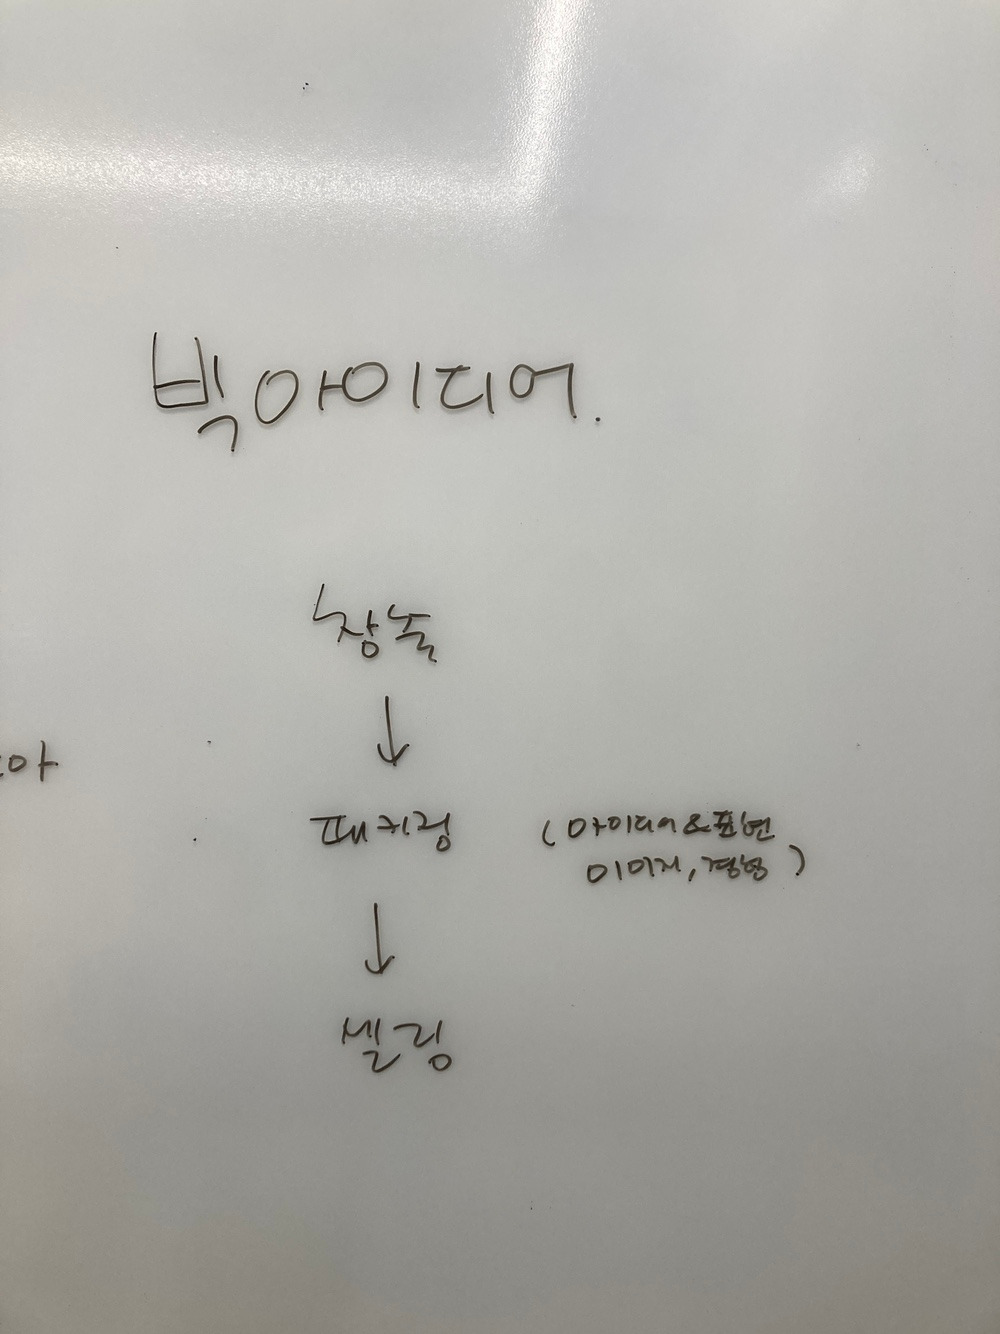 빅아이디어.
창출
↓
아
패키징 (아이디어&표현
이미지, 경험)
↓
셀링